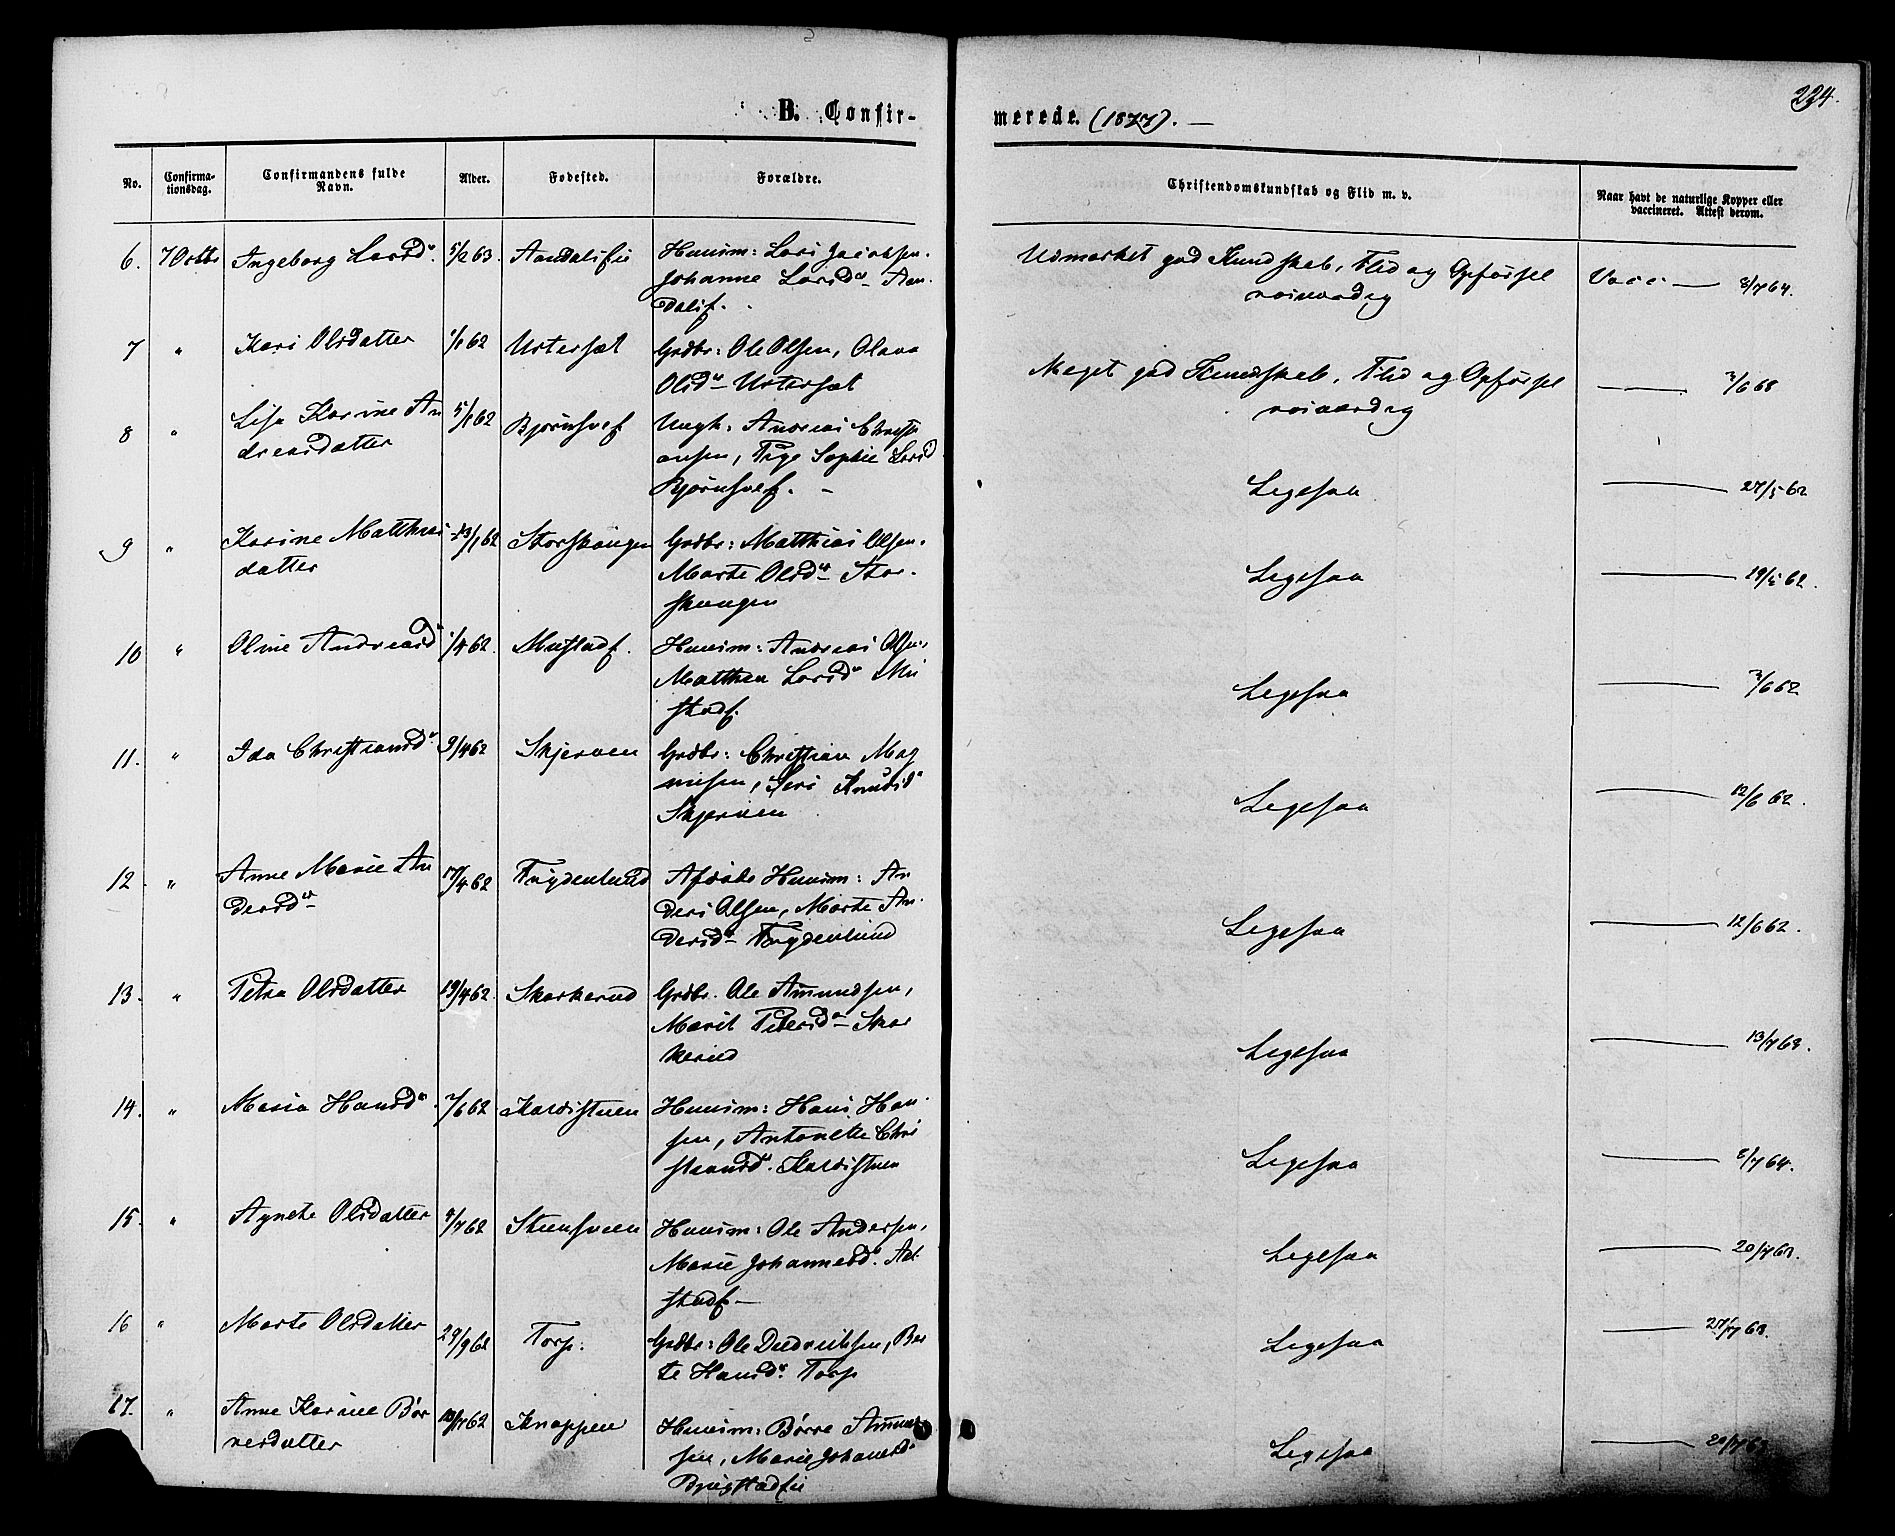 224.
B. Confir-
merede. (1877). —
No.
Confirma-
tionsdag.
Confirmandens fulde
Navn.
Alder.
Fødested.
Forældre.
Christendomskundskab og Flid m. v.
Naar havt de naturlige Kopper eller
vaccineret. Attest derom.
6. 7 Octbr Ingeborg Larsdr 5/2 63. Huusm: Lars Jacobsen.
Johanne Larsdr
Udmærket god Kundskab, Flid og Opførsel
roisværdig
Vacc. — 8/7 64.
7 " Kari Olsdatter 1/1 62 Ustersæt Grdbr: Ole Olsen, Olava
Olsdr Ustersæt
Meget god Kundskab, Flid og Opførsel
roisværdig
— 3/6 68
8 " Lisa Karine An
dreasdatter
5/1 62 Bjørnsvef Ungk: Andreas Christi
ansen, Pige Sophie Larsd
Bjørnsvef. —
Ligesaa — 27/5 62
9 " Karine Matthias
datter
13/1 62 Storskaugen Grdbr: Matthias Olsen.
Marte Olsdr Stor-
skaugen
Ligesaa — 19/5 62.
10 " Oline Andreasdr 1/4 62. Mustadf. Huusm: Andreas Olsen,
Mathea Larsdr Mu
stadf.
Ligesaa — 3/6 62
11. " Ida Christiansdr 9/4 62 Skjerven Grdbr: Christian Mag
nusen, Siri Knudsdr
Skjerven
Ligesaa — 12/6 62.
12. " Anne Marie An
dersdr
17/4 62 Frydenlund Afdøde Huusm: An
ders Olsen, Marte An-
dersdr Frydenlund
Ligesaa — 12/6 62.
13. " Petra Olsdatter 19/4 62. Skarkerud Grdbr. Ole Amundsen,
Marit Pedersdr Skar
kerud
Ligesaa — 13/7 63.
14. " Maria Hansdr 2/6 62 Kaldistuen Huusm: Hans Han-
sen, Antonette Chri
stiansdr. Kaldistuen
Ligesaa — 8/7 64.
15. " Agnete Olsdatter 4/7 62 Steensveen Huusm: Ole Andersen,
Marie Johannesdr.
stadf —
Ligesaa — 20/7 63.
16 " Marte Olsdatter 29/9 62 Torp. Grdbr: Ole Diedriksen, Ber
te Hansdr. Torp
Ligesaa — 27/7 63.
17. " Anne Karine Bør
resdatter
62 Knappen Huusm: Børre Amund
sen, Marie Johansdr
Ligesaa — 20/7 63